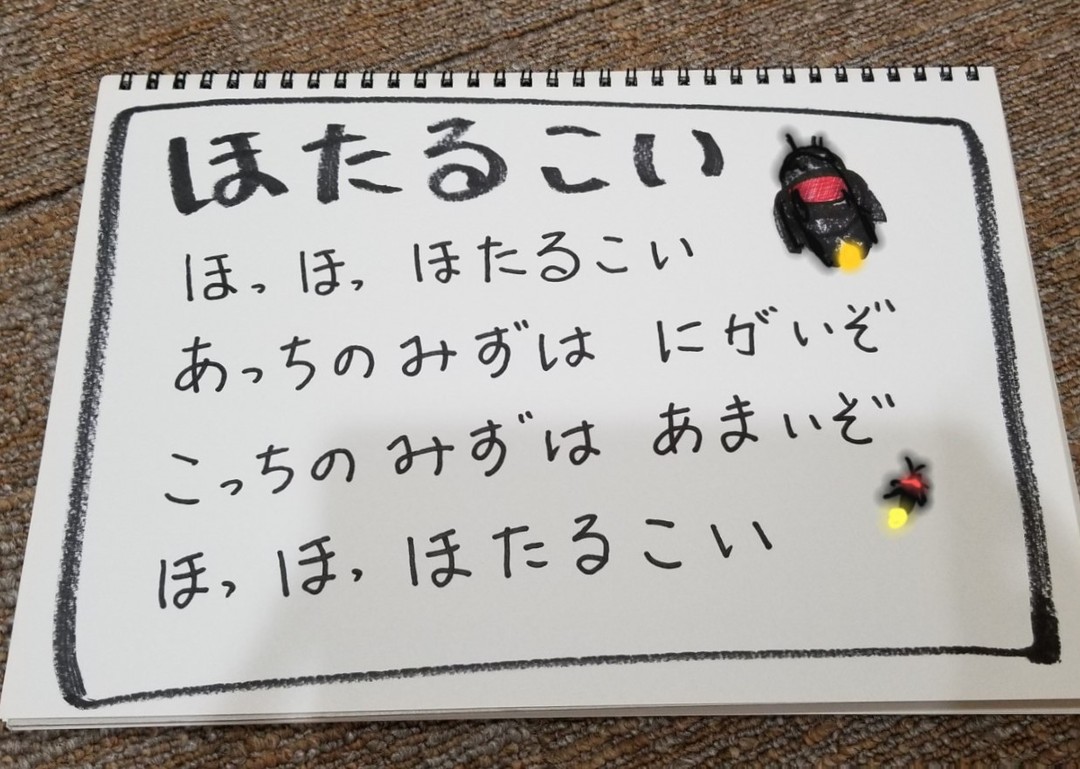 ほたるこい
ほっ ほっ ほたるこい
あっちのみずは にがいぞ
こっちのみずは あまいぞ
ほっ ほっ ほたるこい